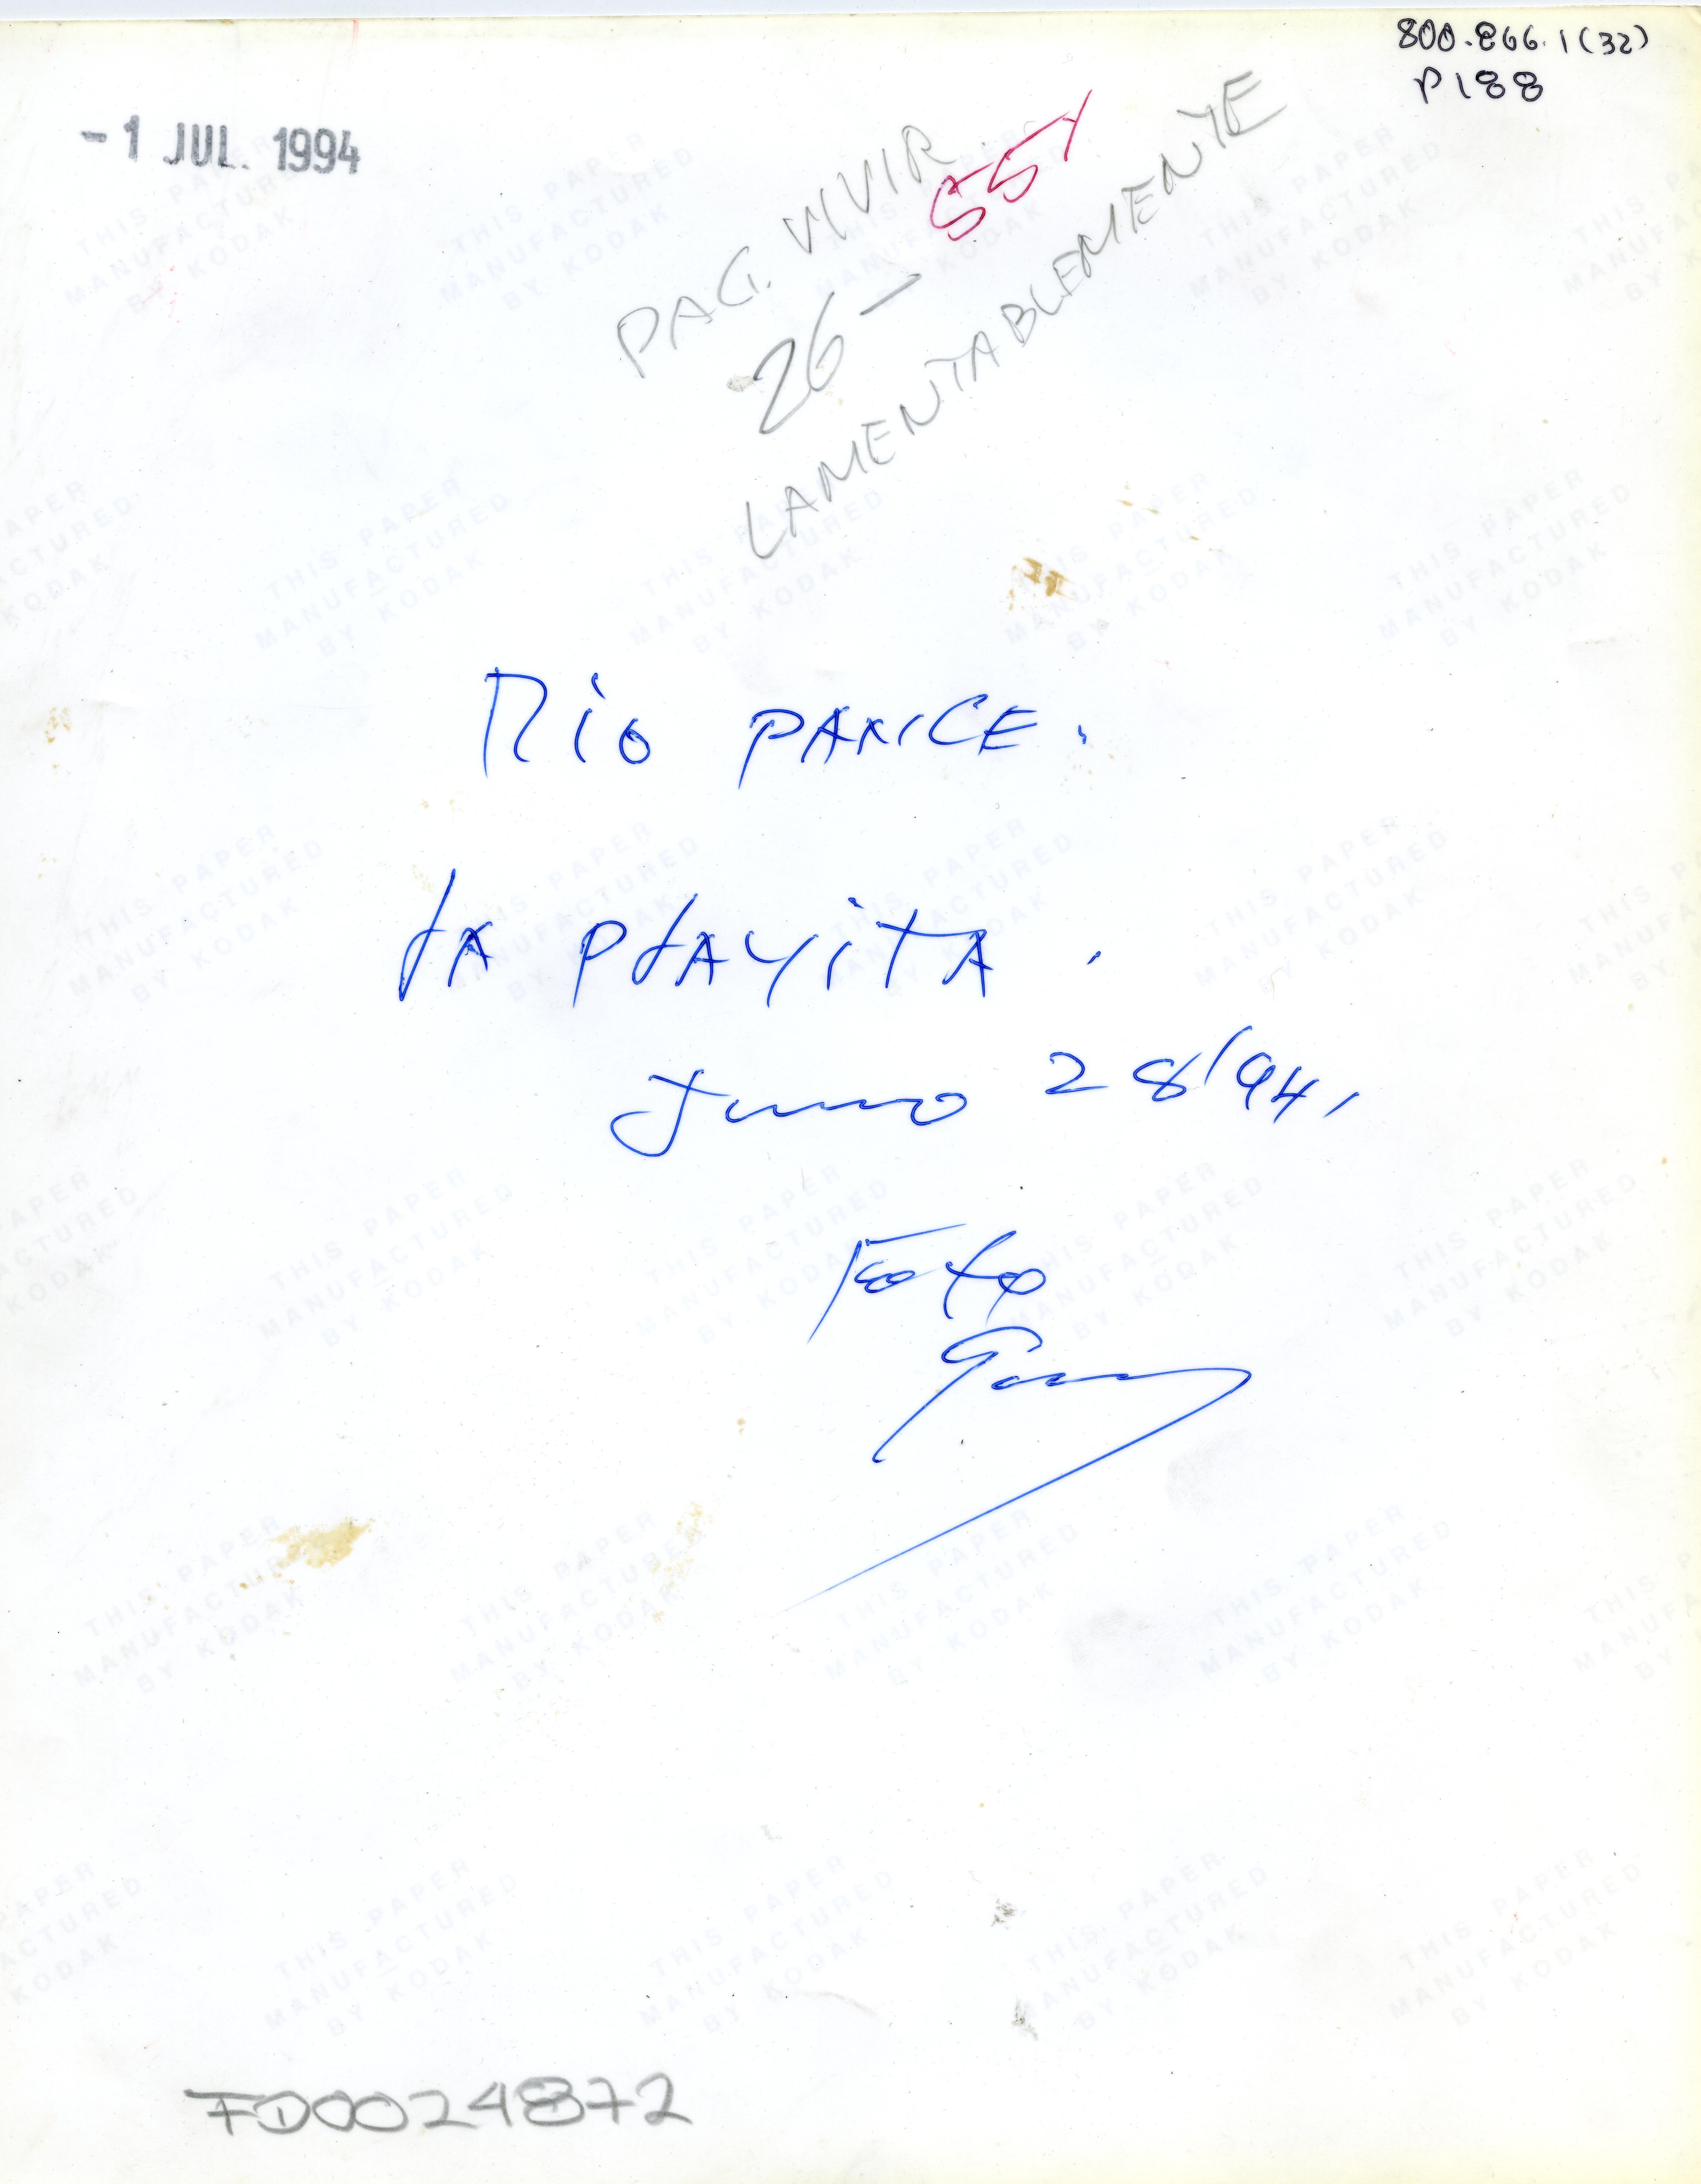 800.866.1(32)
P188
-1 JUL. 1994
PAG. VIVIR.
26-
LAMENTABLEMENTE
Rio PANCE.
LA PLAYITA.
Junio 28/94,
Foto
FD0024872
THIS PAPER
MANUFACTURED
BY KODAK